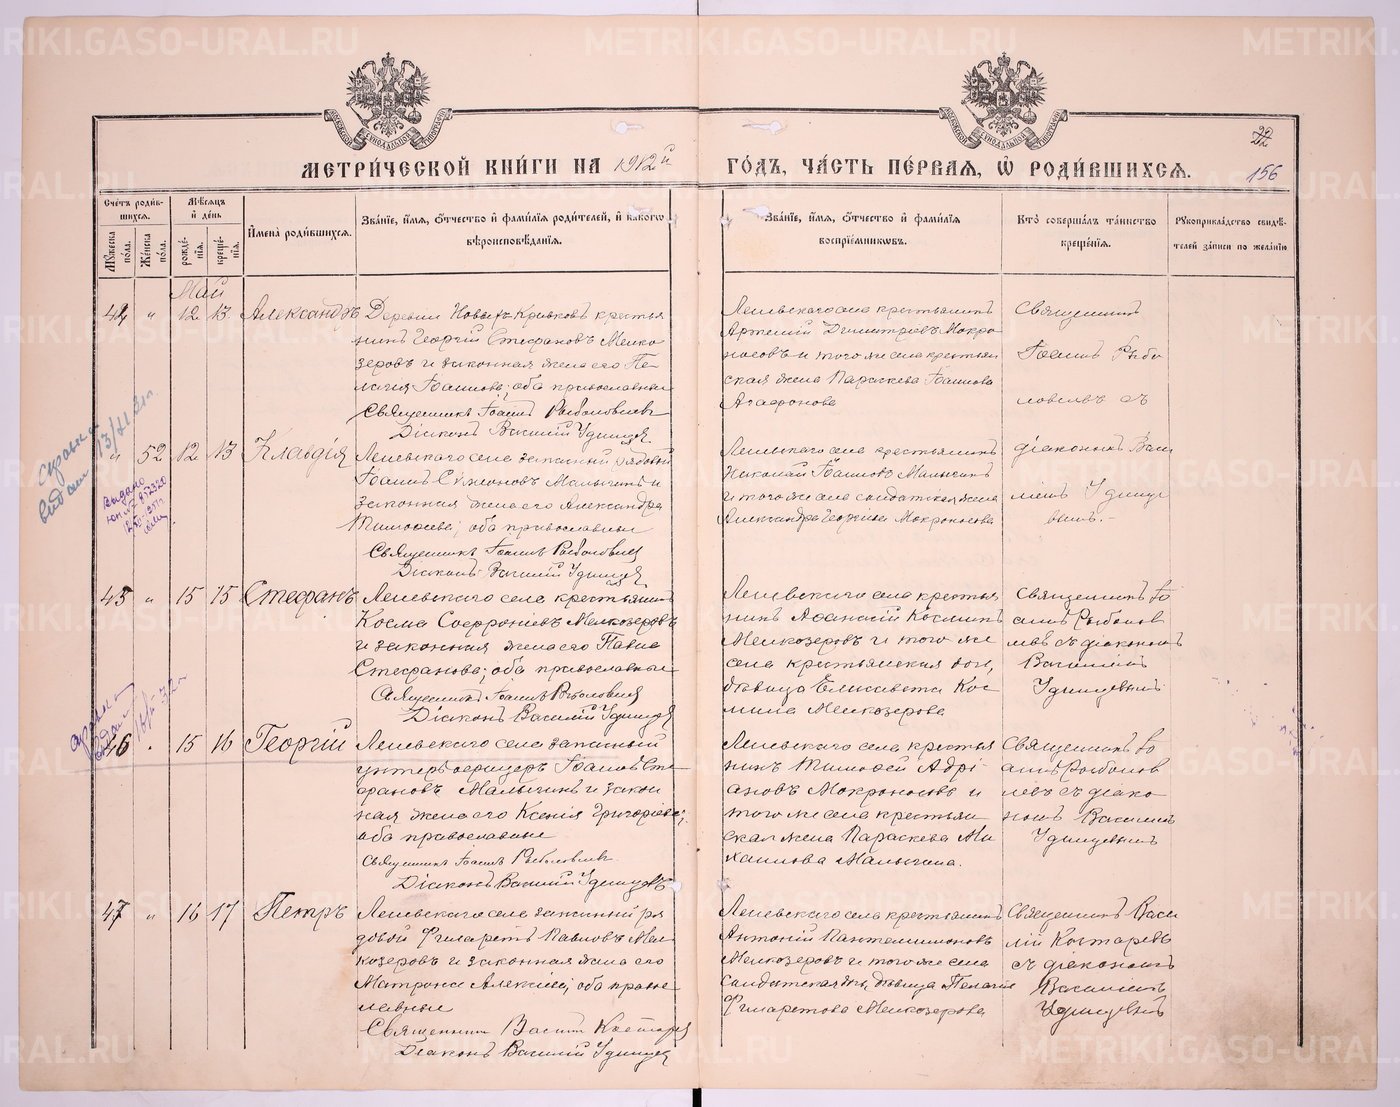 METRIKI.GASO-URAL.RU
20
156
МЕТРИ́ЧЕСКОЙ КНИ́ГИ НА 1912й ГО́ДЪ, ЧА́СТЬ ПЕ́РВАЯ, Ѽ РОДИ́ВШИХСѦ.
Сче́тъ роди́в-
шихся.
Мꙋ́жеска по́ла.
Же́нска по́ла.
Мѣ́сяцъ
и҆ де́нь
рожде́-
нїя.
креще́-
нїя.
И҆мена̀ роди́вшихся.
Зва́нїе, и҆́мя, ѻ҆́тчество и҆ фами́лїя роди́телей, и҆ како́гѡ
вѣроисповѣ́данїя.
Зва́нїе, и҆́мя, ѻ҆́тчество и҆ фами́лїя
воспрїе́мникѡвъ.
Кто̀ соверша́лъ та́инство
креще́нїя.
Рꙋкоприкла́дство свидѣ́-
телей за́писи по жела́нїю
Май
44 " 12 13 Александръ
Деревни Новыхъ Кривковъ крестья
нинъ Георгій Стефановъ Мелко
зеровъ и законная жена его Пе-
лагия Іоаннова; оба православные
Священникъ Іоаннъ Рыболовлевъ
Діаконъ Василій Удинцевъ
Леневскаго села крестьянинъ
Артемій Димитріевъ Мокро
носовъ и того же села крестьян
ская жена Параскева Іоаннова
Агафонова
Священникъ
Іоаннъ Рыбо
ловлевъ съ
" 52 12 13 Клавдія
Леневскаго села запасный рядовой
Іоаннъ Симеоновъ Малыгинъ и
законная жена его Александра
Тимофеева; оба православные
Священникъ Іоаннъ Рыболовлев
Діаконъ Василій Удинцев
Леневскаго села крестьянинъ
Николай Іоанновъ Малыгинъ
и того же села солдатская жена
Александра Георгиева Мокроносова
діакономъ Васи
ліемъ Удинце
вымъ.-
справка
выдана 13/
Выдано
45 " 15 15 Стефанъ
Леневскаго села крестьянинъ
Косма Софроніевъ Мелкозеровъ
и законная жена его Павла
Стефанова; оба православные
Священникъ Іоаннъ Рыболовлев
Діаконъ Василій Удинцев
Леневскаго села крестья
нинъ Афанасій Косминъ
Мелкозеровъ и того же
села крестьянская дочь,
дѣвица Елисавета Кос
мина Мелкозерова
Священникъ Іо
аннъ Рыболов
левъ съ діакономъ
Василіемъ
Удинцевымъ
46 " 15 16 Георгій
Леневскаго села запасный
унтеръ офицеръ Іоаннъ Сте
фановъ Малыгинъ и закон
ная жена его Ксенія Григоріева;
оба православные
Священникъ Іоаннъ Рыболовлев
Діаконъ Василій Удинцевъ
Леневскаго села крестья
нинъ Тимофей Адрі-
ановъ Мокроносовъ и
того же села крестьян
ская жена Параскева Ми
хаилова Малыгина.
Священникъ Іо
аннъ Рыболов
левъ съ діако
номъ Василіемъ
Удинцевымъ
47 " 16 17 Петръ
Леневскаго села запасный ря
довой Филаретъ Павловъ Мел
козеровъ и законная жена его
Матрона Алексіева; оба право
славные
Священникъ Василій Костарев
Діаконъ Василій Удинцев
Леневскаго села крестьянинъ
Антоній Пантелеимоновъ
Мелкозеровъ и того же села
солдатская дочь, дѣвица Пелагия
Филаретова Мелкозерова
Священникъ Васи
лій Костаревъ
съ діакономъ
Василіемъ
Удинцевымъ